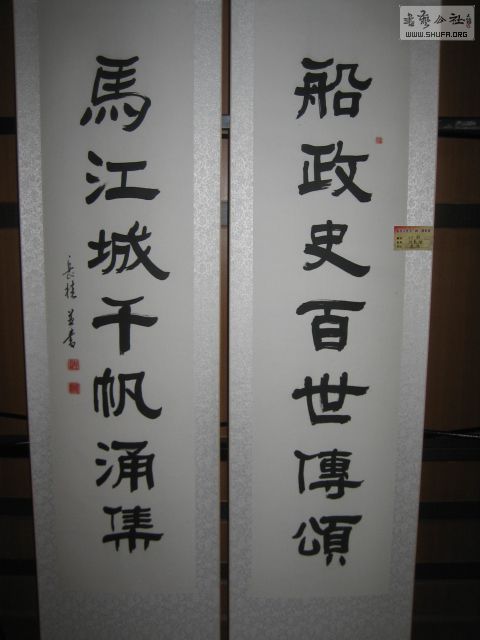 船政史百世傳頌
馬江城千帆涌集
長桂並書
書藝公社
WWW.SHUFA.ORG